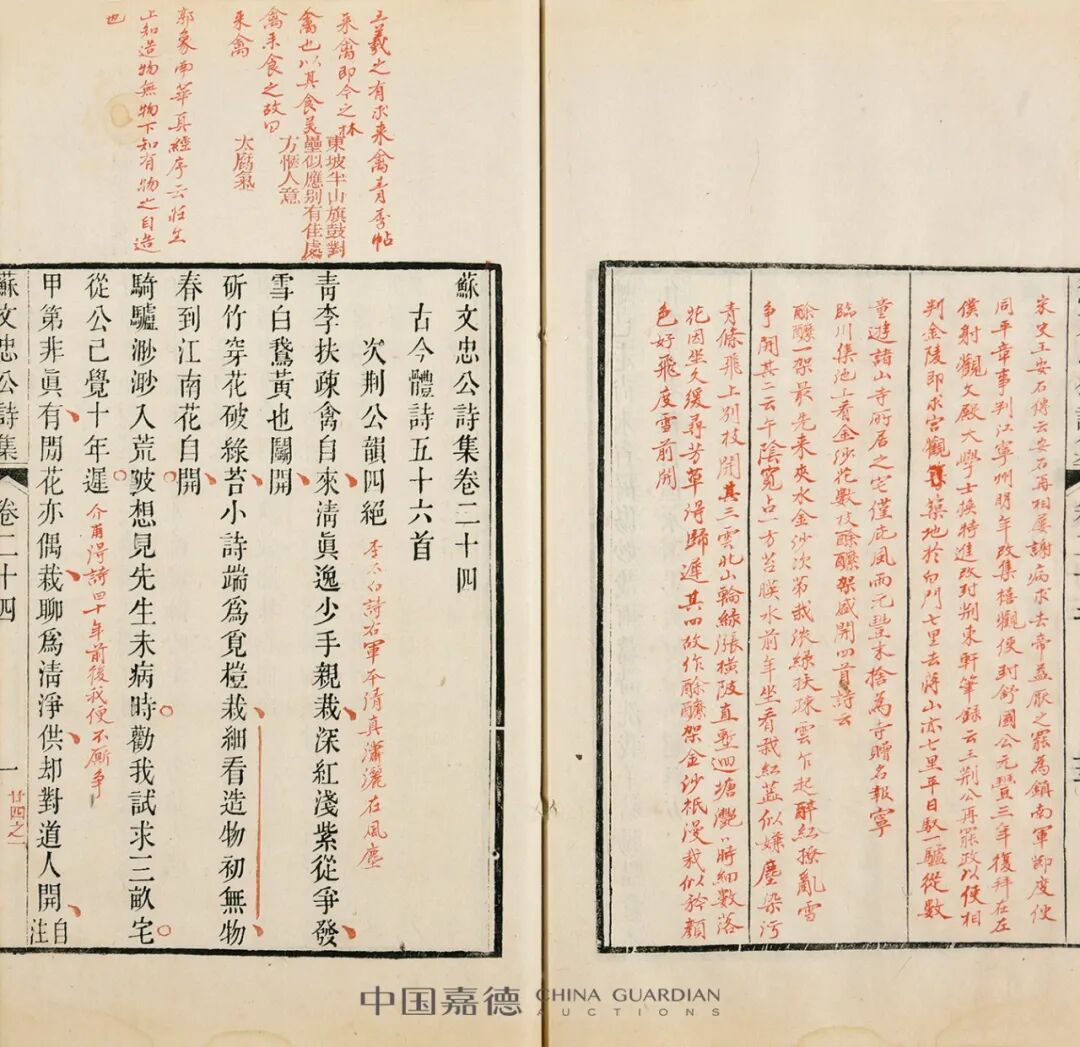 宋史王安石傳云安石再相屢謝病求去帝益厭之罷為鎮南軍節度使
同平章事判江寧州明年改集禧觀使封舒國公元豐三年復拜在左
僕射觀文殿大學士換特進改封荆東軒筆錄云王荆公再罷政以使相
判金陵即求宮觀築地於白門七里去蔣山亦七里平日馭一驢從數
童遊諸山寺所居之宅僅庇風雨元豐末捨為寺贈名報寧
臨川集池上看金沙花數枝酴醾架盛開四首詩云
酴醾一架最先來夾水金沙次第栽濃綠扶疎雲乍起醉紅撩亂雪
争開其二云午陰寬占一方苔膜水前年坐看栽紅蓝似嫌塵染污
青條飛上別枝開其三雲北山輪綠漲橫陂直塹迴塘灔灔時細數落
花因坐久緩尋芳草得歸遲其四故作酴醾架金沙衹漫栽似矜顏
色好飛度雪前開
王羲之有求来禽青李帖
来禽即今之林
禽也以其食美
禽来食之故曰
来禽
東坡半山旗鼓對
壘似應別有佳處
方愜人意
太腐氣
郭象南華真經序云莊生
上知造物無物下知有物之自造
也
蘇文忠公詩集卷二十四
古今體詩五十六首
次荆公韻四絕
李太白詩右軍本清真瀟灑在風塵
青李扶疎禽自來清眞逸少手親栽深紅淺紫從爭發
雪白鵞黃也鬭開
斫竹穿花破綠苔小詩端爲覓榿栽細看造物初無物
春到江南花自開
騎驢渺渺入荒陂想見先生未病時勸我試求三畝宅
從公已覺十年遲
介甫得詩曰十年前後我便不厮争
甲第非眞有閒花亦偶栽聊爲清淨供却對道人開自注
蘇文忠公詩集
卷二十四
一
廿四之一
中国嘉德 CHINA GUARDIAN
AUCTIONS